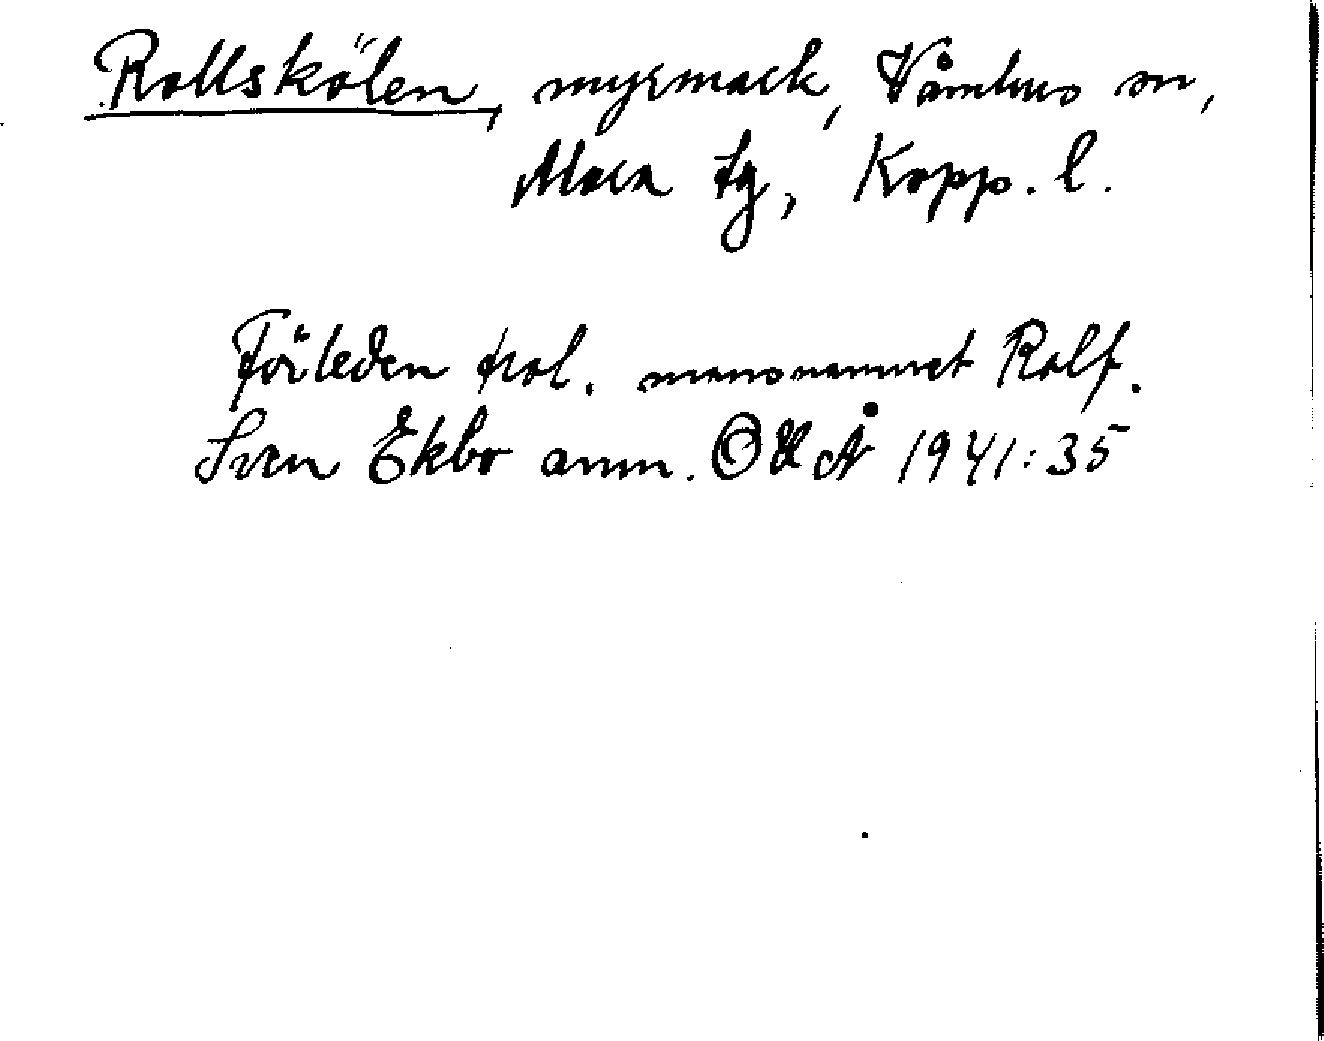 Rollskölen, myrmark, Våmhus sn,
Mora tg, Kopp. l.
Förleden trol. mansnamnet Rolf.
Sven Ekbo anm. OUÅ 1941:35